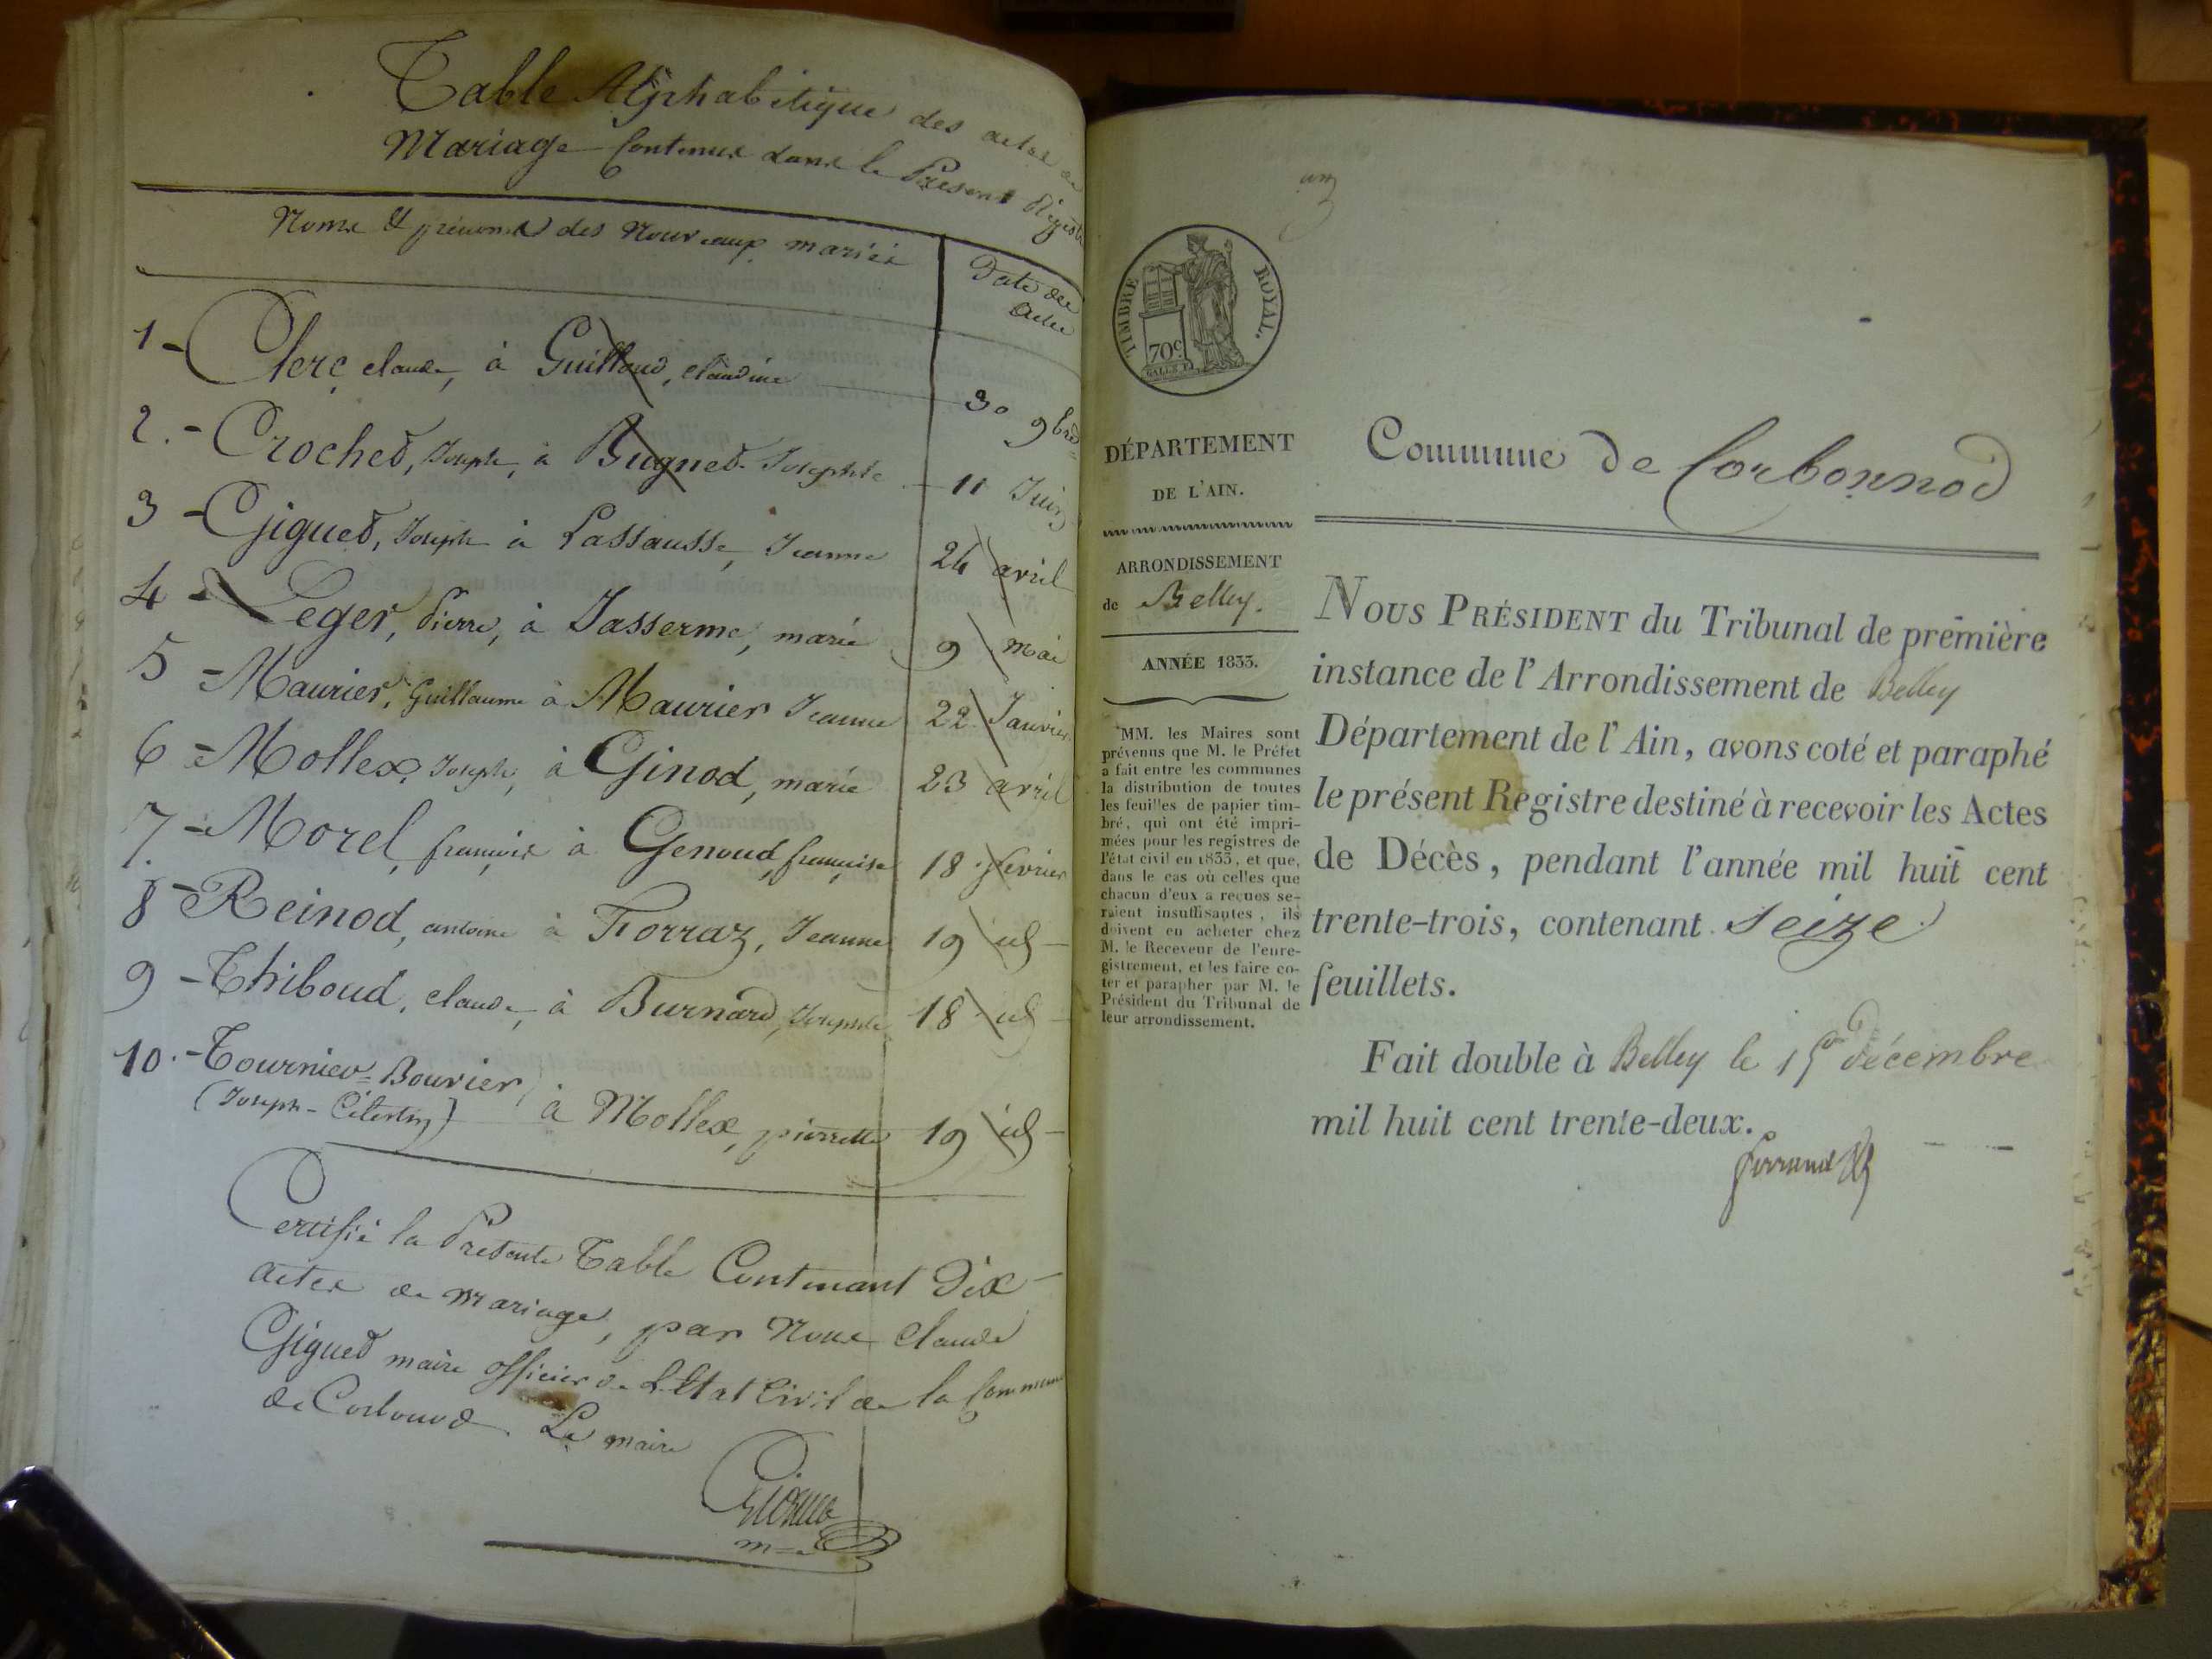 Table Alphabétique des actes de
Mariage Contenus dans le Présent Régistre
Noms & prénoms des Nouveaux mariés
Date des
Actes
1 - Clerc, claude, à Guilloud, claudine 30 9bre
2. - Crochet, Joseph, à Bugnet Josephte 11 Juin
3 - Giguet, Joseph à Lassausse, Jeanne 24 avril
4 - Leger, Pierre, à Jasserme, marie 9 mai
5 - Maurier, Guillaume à Maurier Jeanne 22 Janvier
6 = Mollex, Joseph, à Ginod, marie 23 avril
7 - Morel, françois à Genoud, françoise 18 fevrier
8 - Reinod, antoine à Forraz, Jeanne 19 id -
9 - Thiboud, claude, à Burnard, Josephte 18 id -
10. - Tournier=Bouvier,
(Joseph - Célestin) à Mollex, pierrette 19 id -
Certifié la Présente Table Contenant Dix
actes de mariage, par Nous Claude
Giguet maire officier de L'Etat Civil de la Commune
de Corbonod. Le maire
Giguet
TIMBRE ROYAL.
70c
DÉPARTEMENT
DE L'AIN.
ARRONDISSEMENT
de Belley.
ANNÉE 1833.
MM. les Maires sont
prévenus que M. le Préfet
a fait entre les communes
la distribution de toutes
les feuilles de papier tim-
bré, qui ont été impri-
mées pour les registres de
l'état civil en 1833, et que,
dans le cas où celles que
chacun d'eux a reçues se-
raient insuffisantes, ils
doivent en acheter chez
M. le Receveur de l'enre-
gistrement, et les faire co-
ter et parapher par M. le
Président du Tribunal de
leur arrondissement.
Commune de Corbonnod
NOUS PRÉSIDENT du Tribunal de première
instance de l'Arrondissement de Belley
Département de l'Ain, avons coté et paraphé
le présent Registre destiné à recevoir les Actes
de Décès, pendant l'année mil huit cent
trente-trois, contenant Seize
feuillets.
Fait double à Belley le 15 décembre
mil huit cent trente-deux.